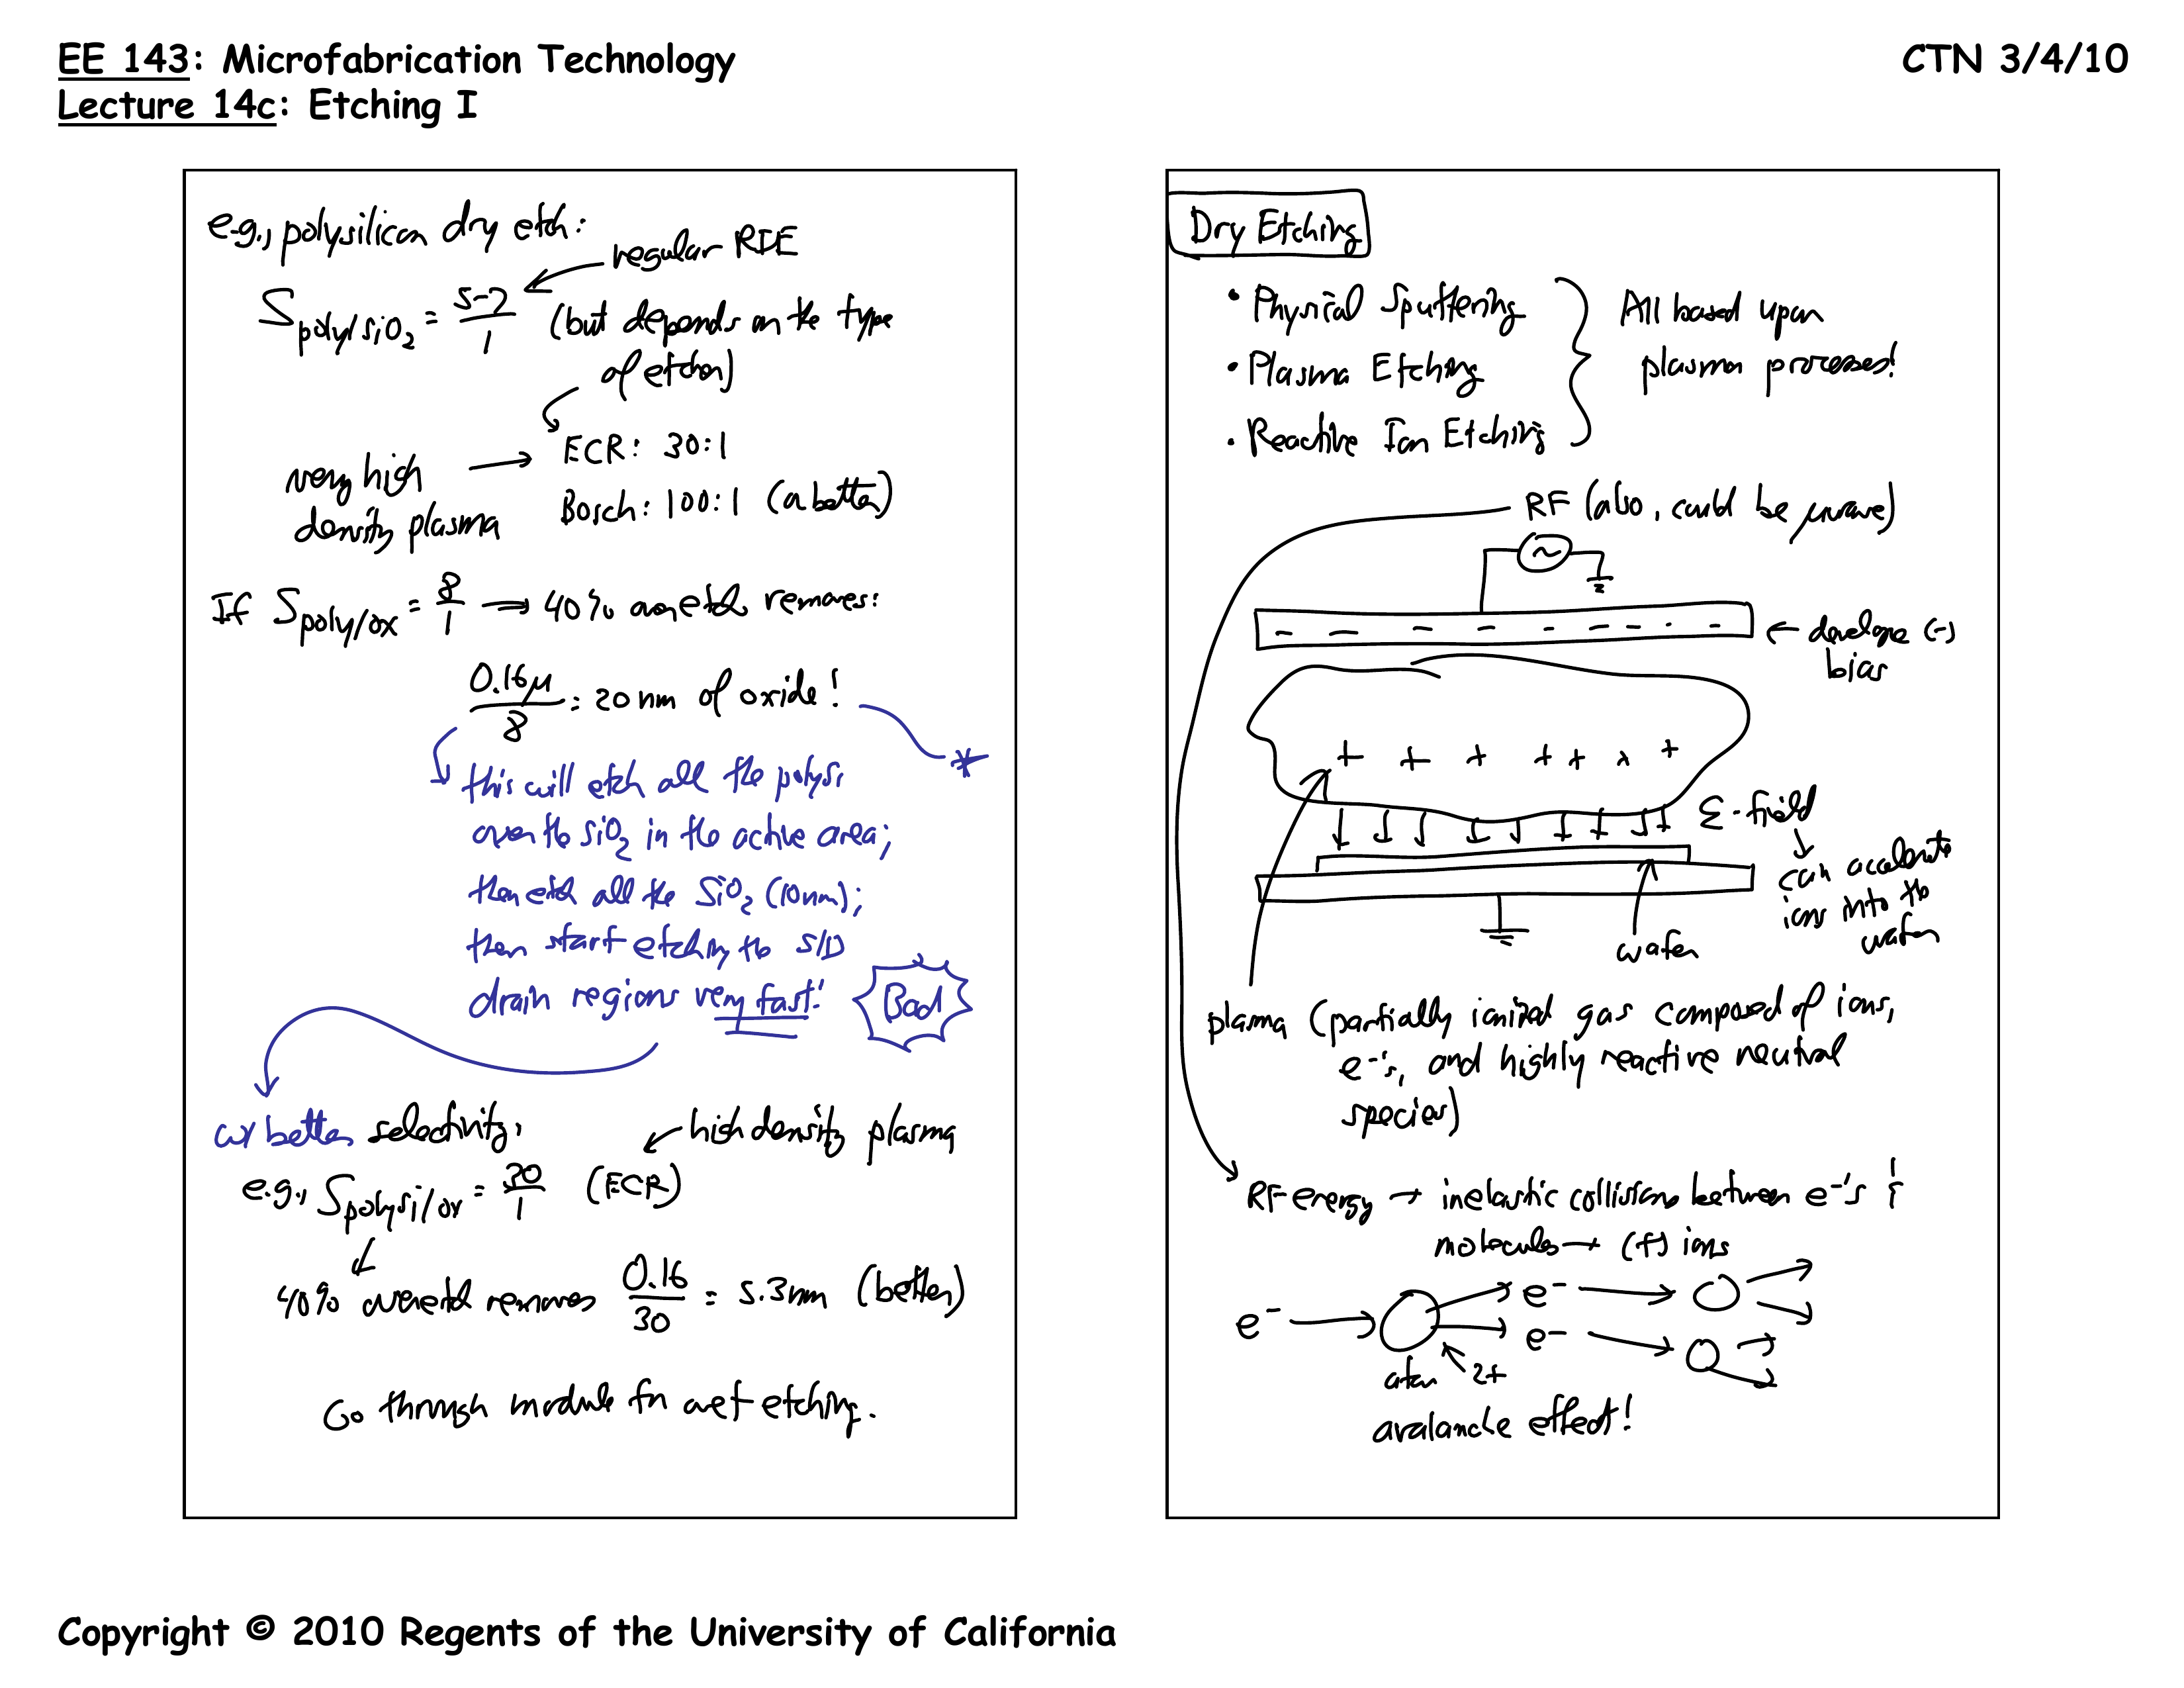 EE 143: Microfabrication Technology
Lecture 14c: Etching I
CTN 3/4/10
e.g., polysilicon dry etch:
regular RIE
S poly/SiO2 = 5-7/1 (but depends on the type
of etcher)
ECR: 30:1
very high
density plasma
Bosch: 100:1 (or better)
If S poly/ox = 8/1 → 40% overetch removes:
0.16μ/8 = 20 nm of oxide!
*
this will etch all the polysi
over the SiO2 in the active area;
then etch all the SiO2 (10nm);
then start etching the S/D
drain regions very fast!
Bad
w/ better selectivity:
high density plasma
e.g., S polysi/ox = 30/1 (ECR)
40% overetch removes 0.16/30 = 5.3nm (better)
Go through module for wet etching.
Dry Etching
• Physical Sputtering
• Plasma Etching
• Reactive Ion Etching
All based upon
plasma processes!
RF (also, could be μwave)
~
- - - - - - - - -
← develops (-)
bias
+ + + + + + +
E-field
can accelerate
ions into the
wafer
wafer
plasma (partially ionized gas composed of ions,
e-'s, and highly reactive neutral
species)
RF energy → inelastic collisions between e-'s &
molecules → (+) ions
e- → e- →
e- →
atom 2+
avalanche effect!
Copyright © 2010 Regents of the University of California